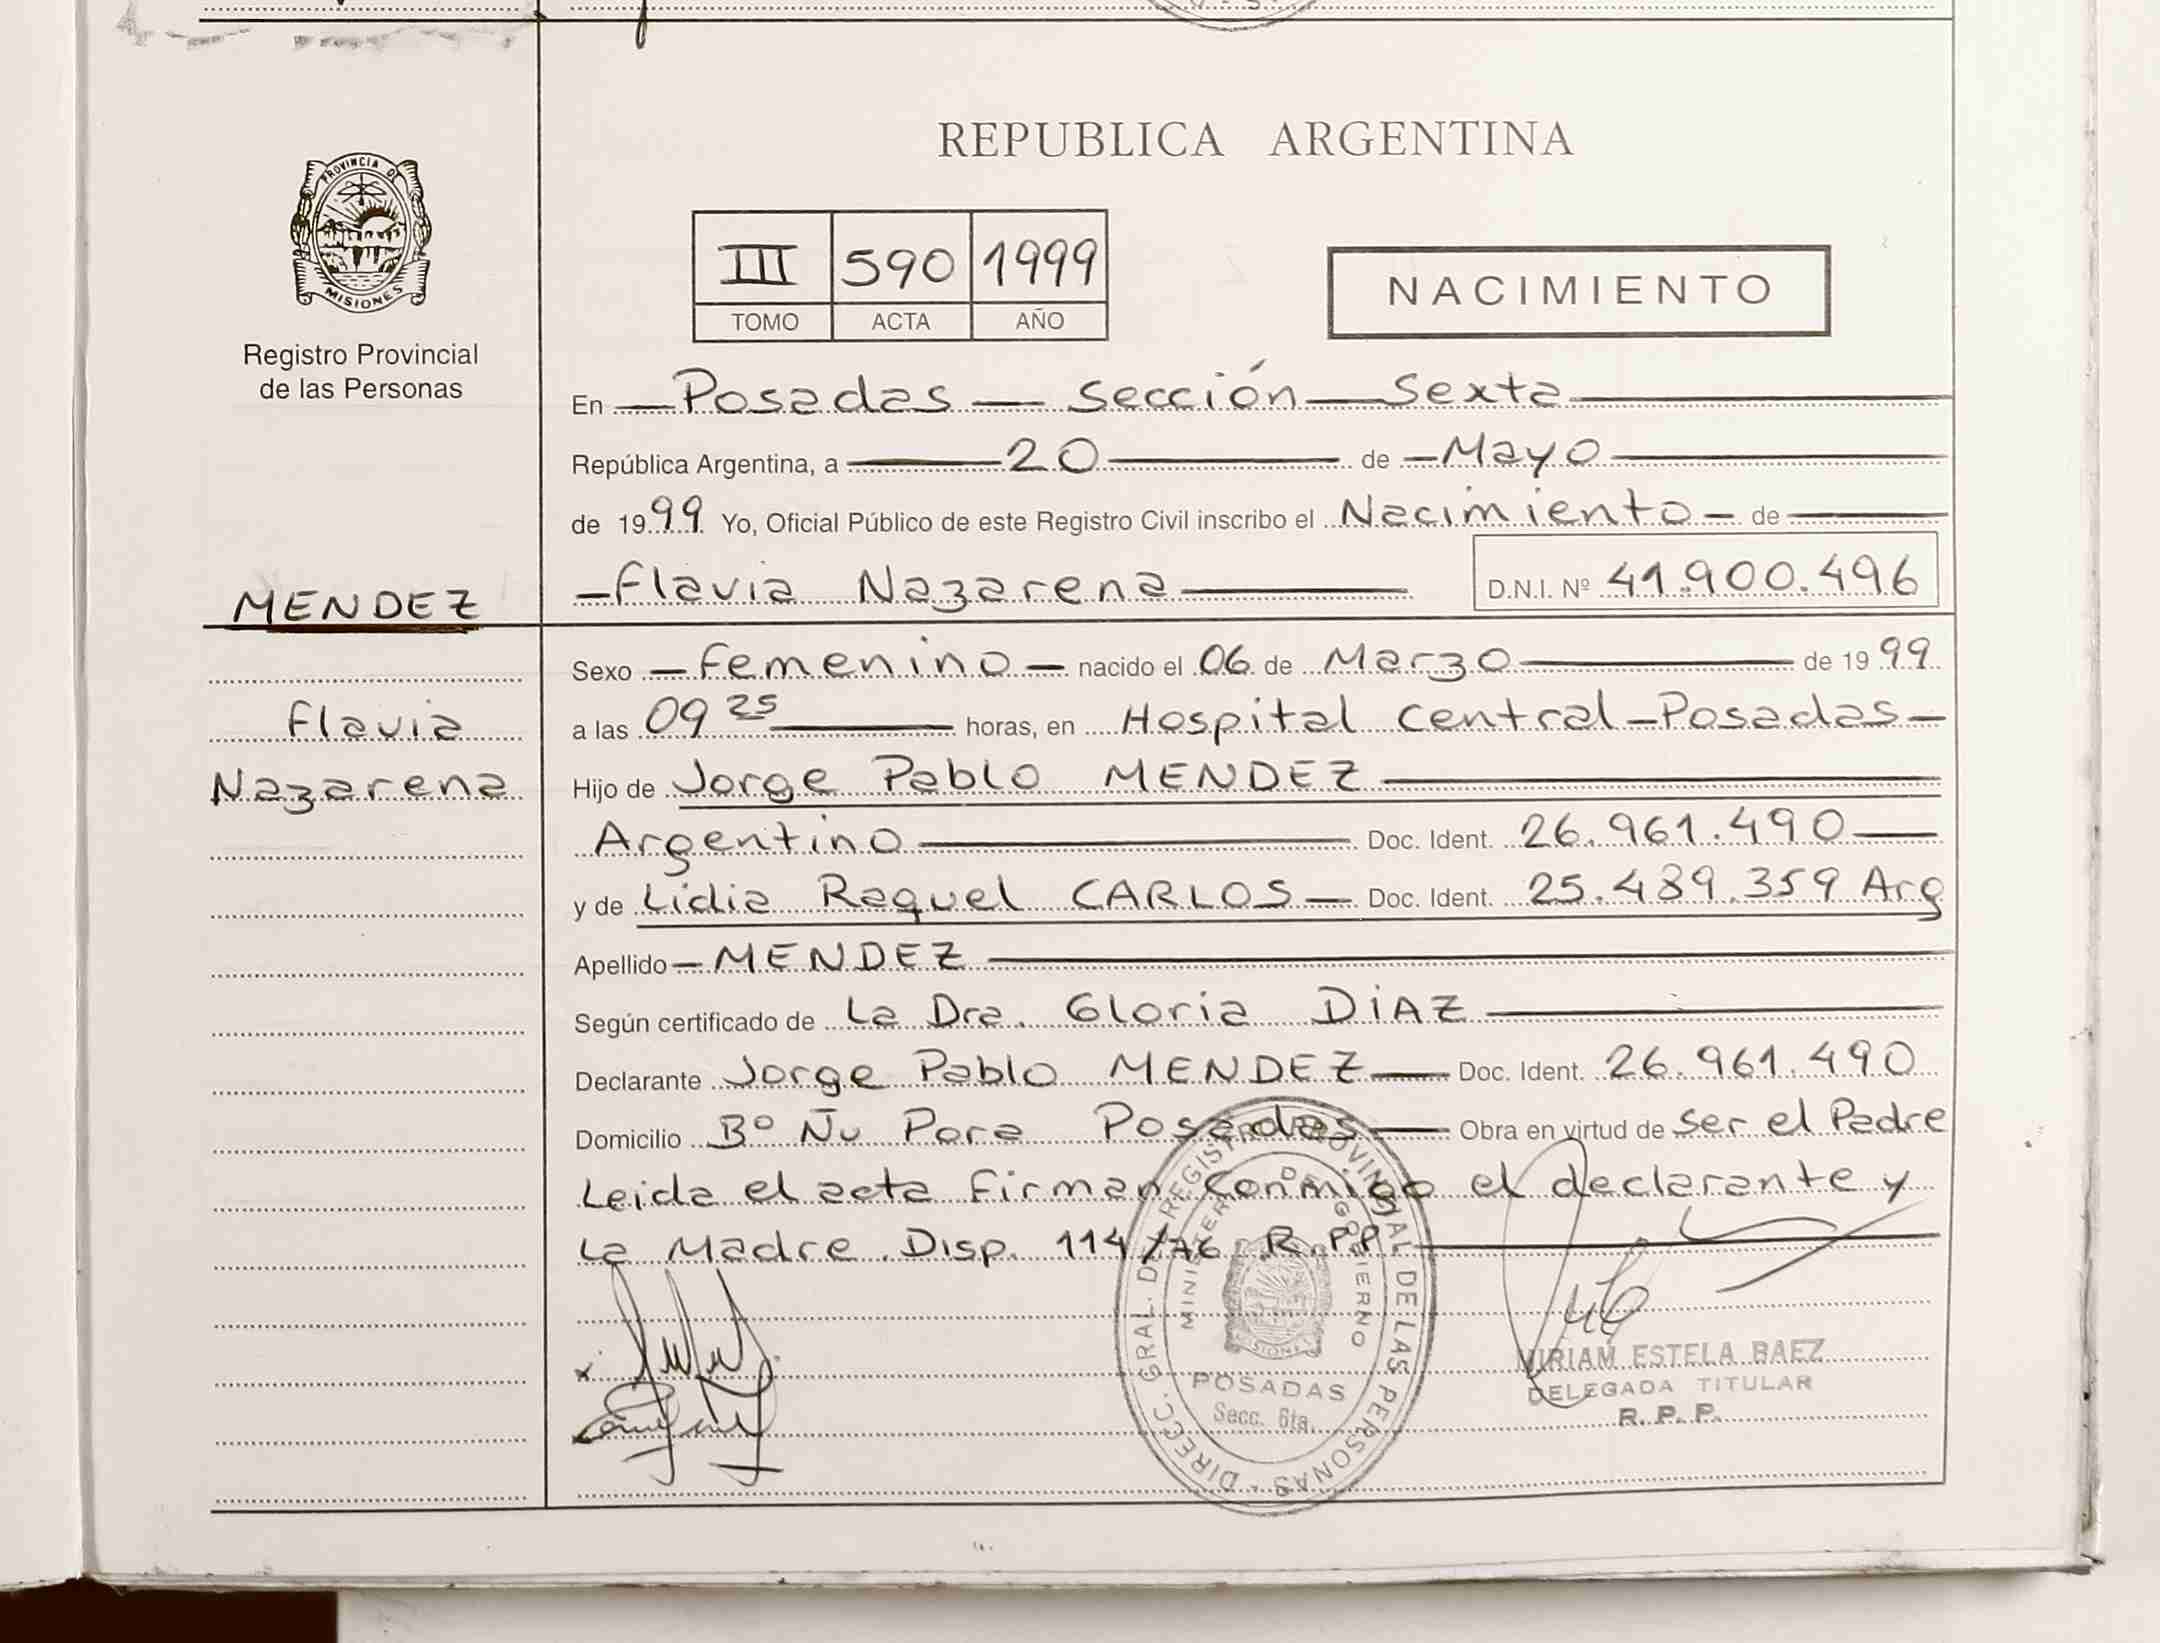 REPUBLICA ARGENTINA
PROVINCIA DE
MISIONES
Registro Provincial
de las Personas
III 590 1999
TOMO ACTA AÑO
NACIMIENTO
En Posadas - sección - Sexta
República Argentina, a 20 de Mayo
de 1999 Yo, Oficial Público de este Registro Civil inscribo el Nacimiento - de
MENDEZ
Flavia Nazarena D.N.I. Nº 41.900.496
Sexo - Femenino - nacido el 06 de Marzo de 1999
Flavia
a las 09 25 horas, en Hospital Central - Posadas -
Nazarena
Hijo de Jorge Pablo MENDEZ
Argentino Doc. Ident. 26.961.490
y de Lidia Raquel CARLOS - Doc. Ident. 25.489.359 Arg
Apellido - MENDEZ
Según certificado de La Dra. Gloria DIAZ
Declarante Jorge Pablo MENDEZ Doc. Ident. 26.961.490
Domicilio Bº Ñu Pora Posadas Obra en virtud de ser el Padre
Leida el acta firman conmigo el declarante y
La Madre. Disp. 114/76 R.P.P.
DIRECC. GRAL. DEL REGISTRO PROVINCIAL DE LAS PERSONAS
MINISTERIO DE GOBIERNO
MISIONES
POSADAS
Secc. 6ta.
MIRIAM ESTELA BAEZ
DELEGADA TITULAR
R. P. P.